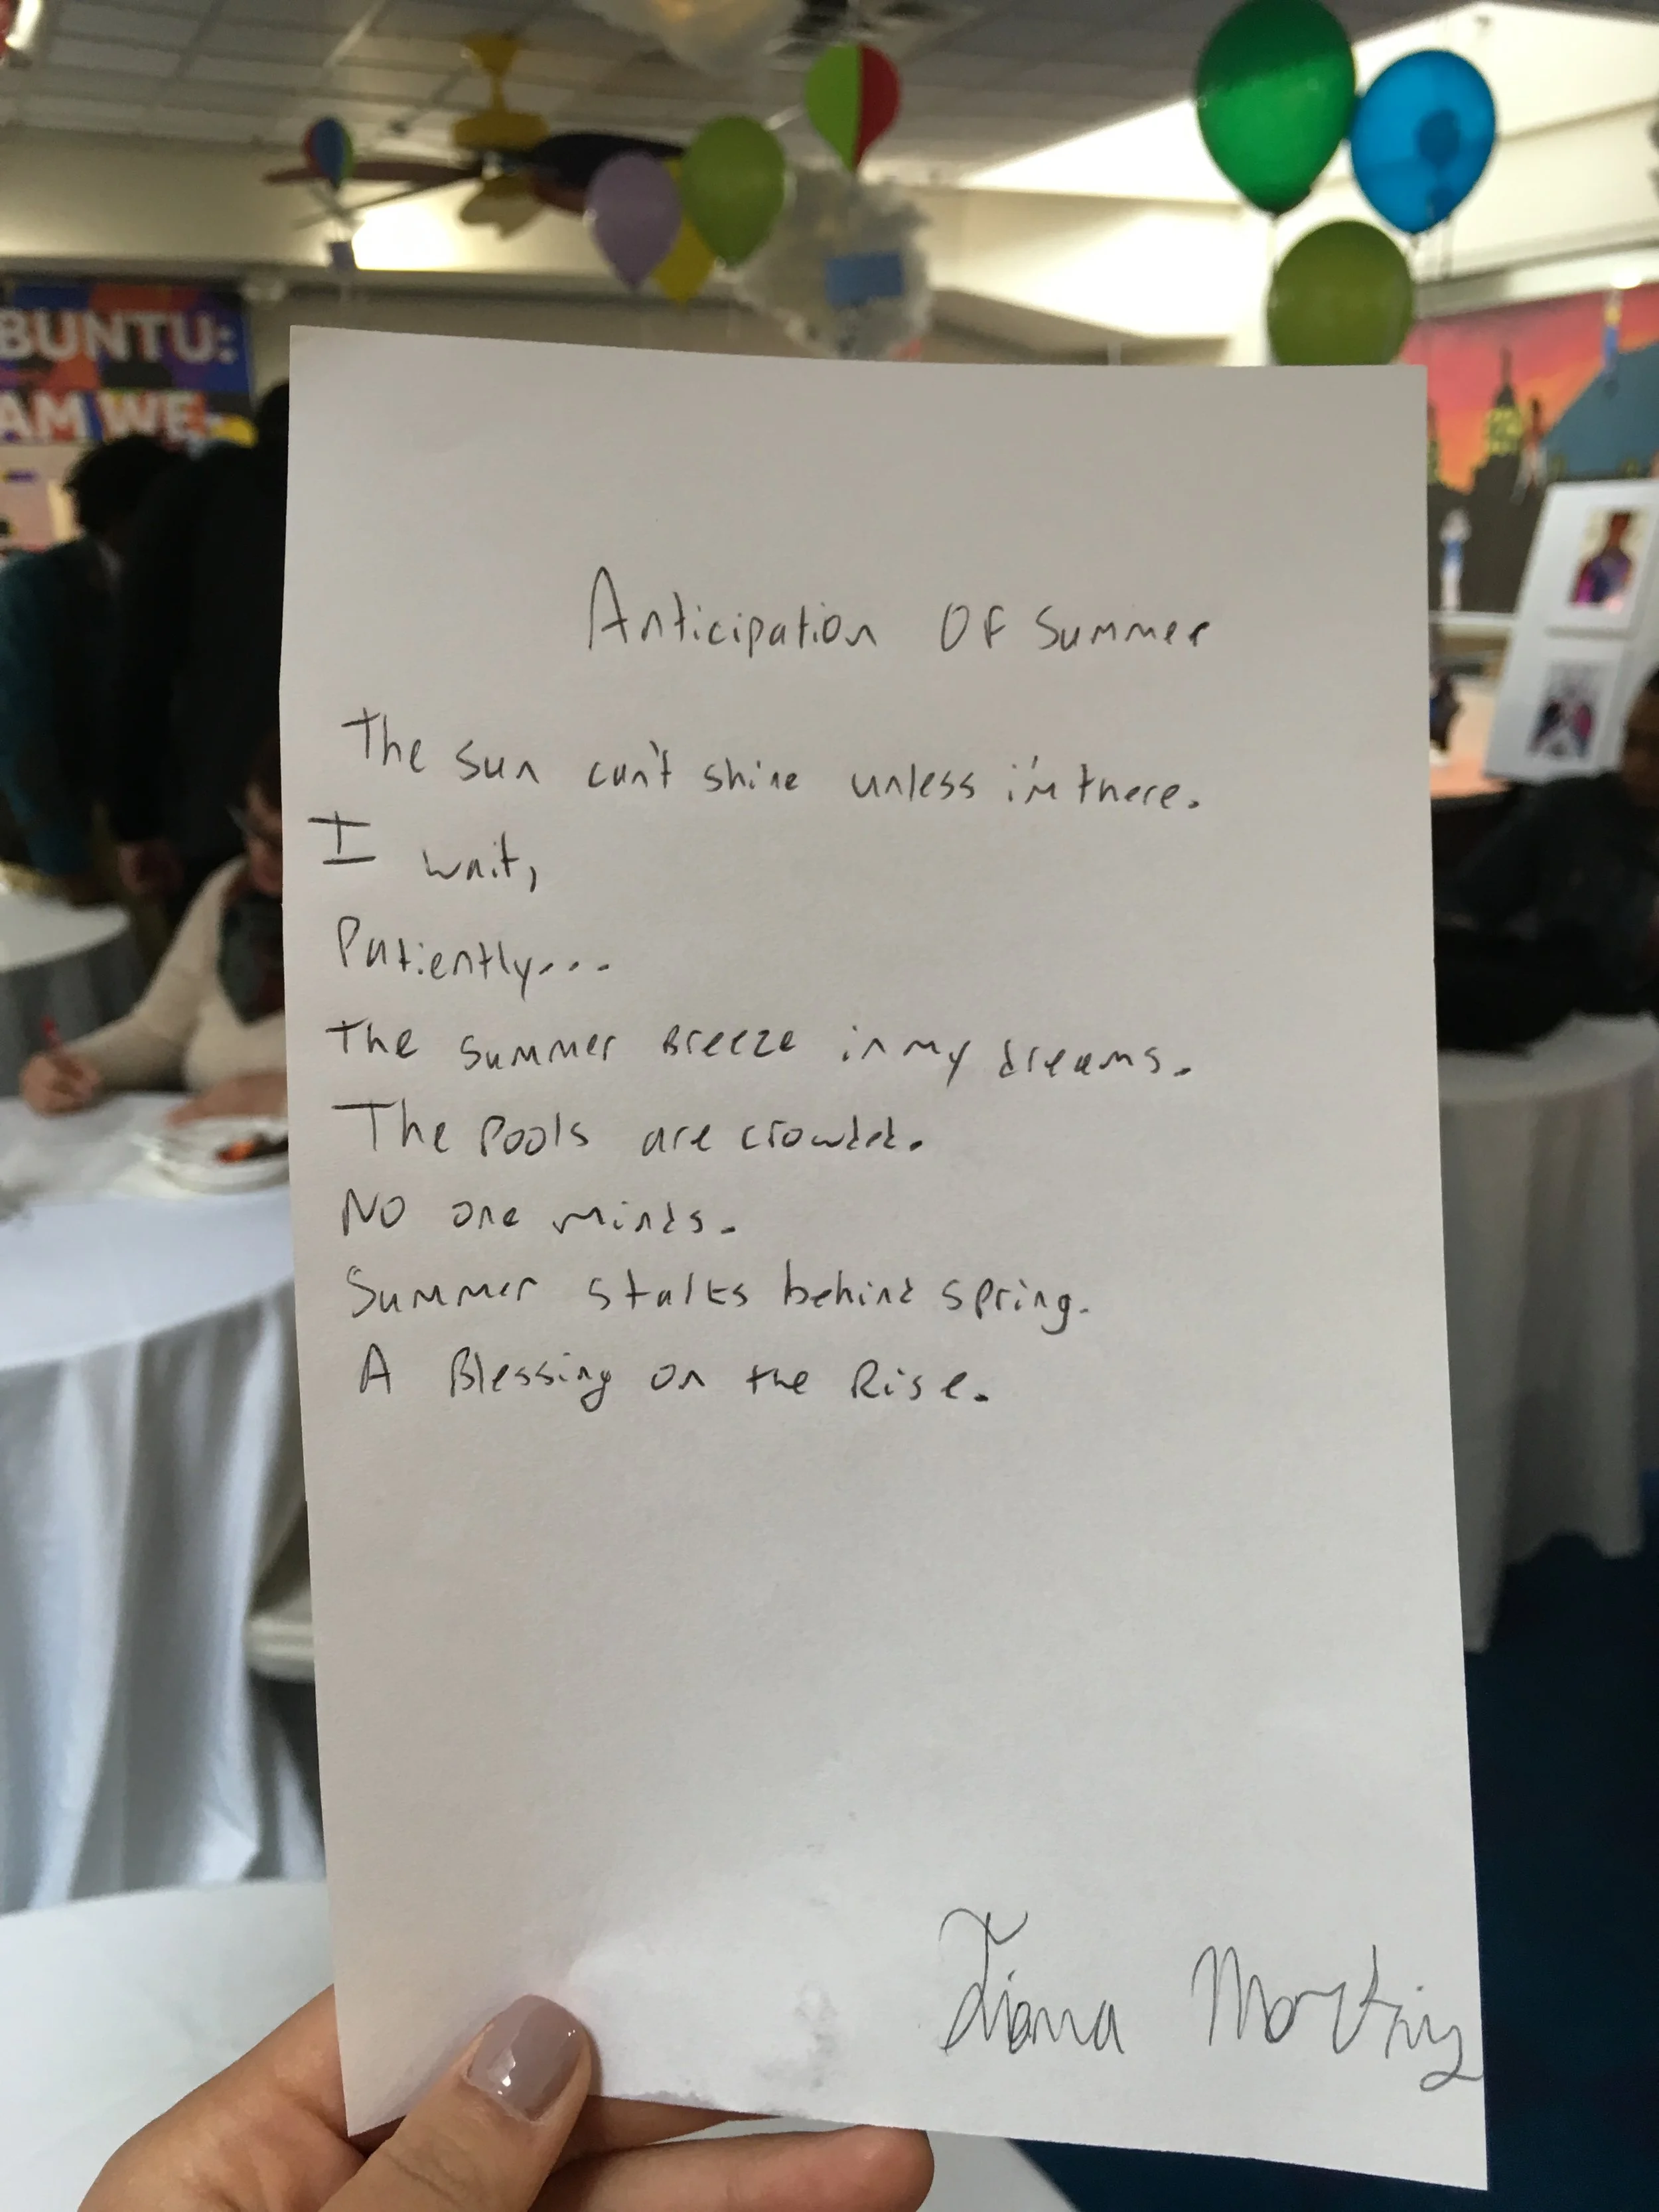 BUNTU:
AM WE
Anticipation Of Summer
The sun can't shine unless i'm there.
I wait,
Patiently...
The summer Breeze in my dreams.
The Pools are crowded.
No one minds.
Summer stalks behind spring.
A Blessing on the Rise.